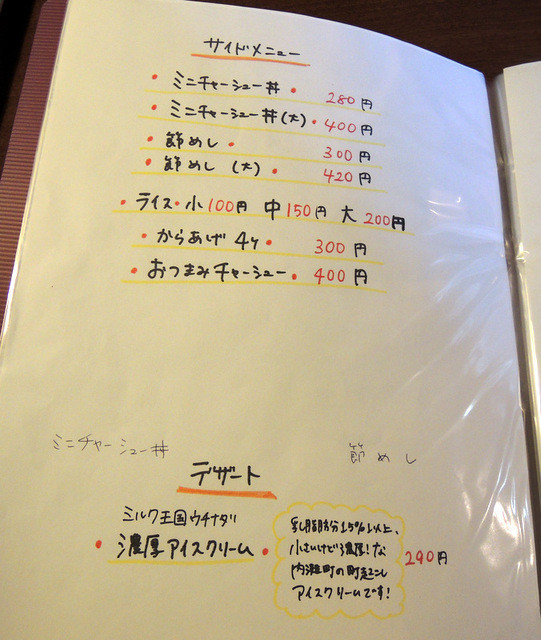 サイドメニュー
・ミニチャーシュー丼・ 280円
・ミニチャーシュー丼(大)・400円
・節めし・ 300円
・節めし(大)・ 420円
・ライス・小100円 中150円 大200円
・からあげ4ケ・ 300円
・おつまみチャーシュー・400円
ミニチャーシュー丼
節めし
デザート
ミルク王国ウチナダ
・濃厚アイスクリーム・
乳脂肪分15%以上、
小さいけど濃厚!な
内灘町の町起こし
アイスクリームです!
290円